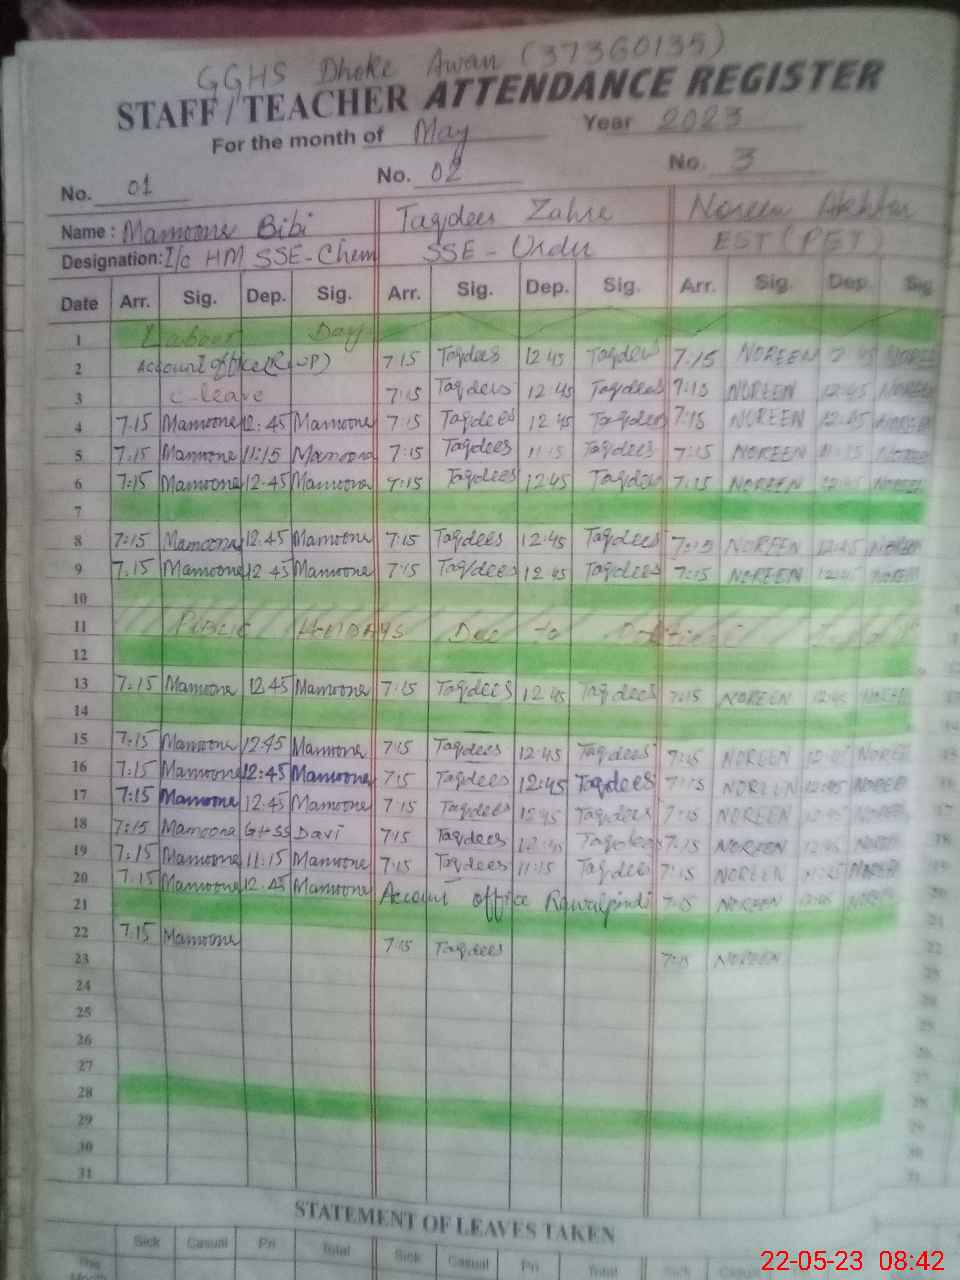 GGHS Dhoke Awan (37360135)
STAFF/TEACHER ATTENDANCE REGISTER
For the month of May Year 2023
No. 01 No. 02 No. 3
Name: Mamoona Bibi Taqdees Zahra Noreen Akhtar
Designation: I/c HM SSE-Chem SSE-Urdu EST (PET)
Date Arr. Sig. Dep. Sig. Arr. Sig. Dep. Sig. Arr. Sig. Dep. Sig
1 Labour Day
2 Account office (RWP) 7:15 Taqdees 12:45 Taqdees 7:15 NOREEN 12:45 NOREEN
3 C-leave 7:15 Taqdees 12:45 Taqdees 7:15 NOREEN 12:45 NOREEN
4 7:15 Mamoona 12:45 Mamoona 7:15 Taqdees 12:45 Taqdees 7:15 NOREEN 12:45 NOREEN
5 7:15 Mamoona 11:15 Mamoona 7:15 Taqdees 11:15 Taqdees 7:15 NOREEN 11:15 NOREEN
6 7:15 Mamoona 12:45 Mamoona 7:15 Taqdees 12:45 Taqdees 7:15 NOREEN 12:45 NOREEN
7
8 7:15 Mamoona 12:45 Mamoona 7:15 Taqdees 12:45 Taqdees 7:15 NOREEN 12:45 NOREEN
9 7:15 Mamoona 12:45 Mamoona 7:15 Taqdees 12:45 Taqdees 7:15 NOREEN 12:45 NOREEN
10
11 Public Holidays Due to
12
13 7:15 Mamoona 12:45 Mamoona 7:15 Taqdees 12:45 Taqdees 7:15 NOREEN 12:45 NOREEN
14
15 7:15 Mamoona 12:45 Mamoona 7:15 Taqdees 12:45 Taqdees 7:15 NOREEN 12:45 NOREEN
16 7:15 Mamoona 12:45 Mamoona 7:15 Taqdees 12:45 Taqdees 7:15 NOREEN 12:45 NOREEN
17 7:15 Mamoona 12:45 Mamoona 7:15 Taqdees 12:45 Taqdees 7:15 NOREEN 12:45 NOREEN
18 7:15 Mamoona GHSS Davi 7:15 Taqdees 12:45 Taqdees 7:15 NOREEN 12:45 NOREEN
19 7:15 Mamoona 11:15 Mamoona 7:15 Taqdees 11:15 Taqdees 7:15 NOREEN NOREEN
20 7:15 Mamoona 12:45 Mamoona Account office Rawalpindi 7:15 NOREEN 12:45 NOREEN
21
22 7:15 Mamoona 7:15 Taqdees 7:15 NOREEN
23
24
25
26
27
28
29
30
31
STATEMENT OF LEAVES TAKEN
Sick Casual Pri Total Sick Casual Pri Total Sick
This Month
22-05-23 08:42